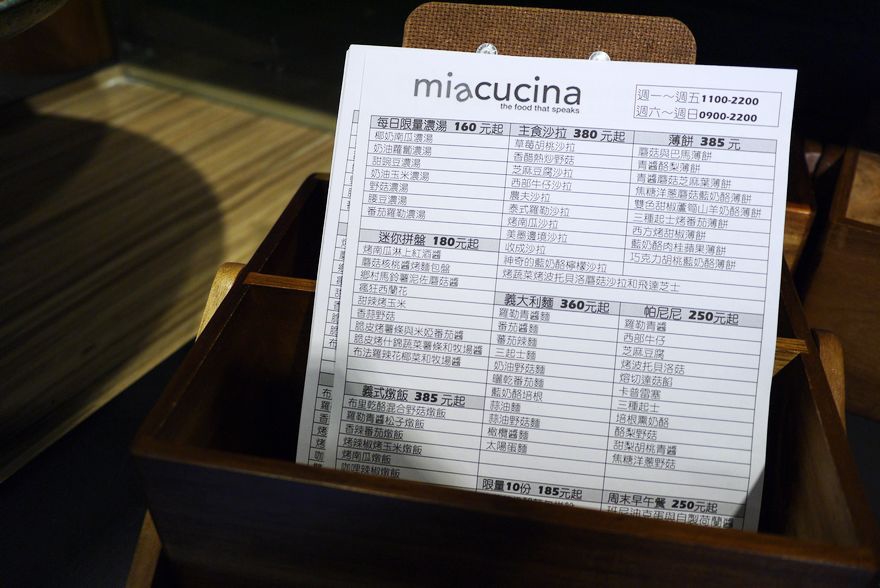 miacucina
the food that speaks
週一～週五 1100-2200
週六～週日 0900-2200
每日限量濃湯 160 元起
椰奶南瓜濃湯
奶油蘿蔔濃湯
甜豌豆濃湯
奶油玉米濃湯
野菇濃湯
腰豆濃湯
番茄羅勒濃湯
迷你拼盤 180元起
烤南瓜淋上紅酒醬
蘑菇核桃醬烤麵包盤
鄉村馬鈴薯泥佐蘑菇醬
瘋狂西蘭花
甜辣烤玉米
香蒜野菇
脆皮烤薯條與米婭番茄醬
脆皮烤什錦蔬菜薯條和牧場醬
布法羅辣花椰菜和牧場醬
義式燉飯 385 元起
布里乾酪混合野菇燉飯
羅勒青醬松子燉飯
香辣番茄燉飯
烤辣椒烤玉米燉飯
烤南瓜燉飯
咖哩辣椒燉飯
主食沙拉 380 元起
草莓胡桃沙拉
香醋熱炒野菇
芝麻豆腐沙拉
西部牛仔沙拉
農夫沙拉
泰式羅勒沙拉
烤南瓜沙拉
美墨邊境沙拉
收成沙拉
神奇的藍奶酪檸檬沙拉
烤蔬菜烤波托貝洛蘑菇沙拉和飛達芝士
義大利麵 360元起
羅勒青醬麵
番茄醬麵
番茄辣麵
三起士麵
奶油野菇麵
曬乾番茄麵
藍奶酪培根
蒜油麵
蒜油野菇麵
橄欖醬麵
太陽蛋麵
限量10份 185元起
薄餅 385 元
蘑菇與巴馬薄餅
青醬酪梨薄餅
青醬蘑菇芝麻葉薄餅
焦糖洋蔥蘑菇藍奶酪薄餅
雙色甜椒蘆筍山羊奶酪薄餅
三種起士烤番茄薄餅
西方烤甜椒薄餅
藍奶酪肉桂蘋果薄餅
巧克力胡桃藍奶酪薄餅
帕尼尼 250元起
羅勒青醬
西部牛仔
芝麻豆腐
烤波托貝洛菇
熔切達菇餡
卡普雷塞
三種起士
培根熏奶酪
酪梨野菇
甜梨胡桃青醬
焦糖洋蔥野菇
周末早午餐 250元起
班尼迪克蛋與自製荷蘭醬